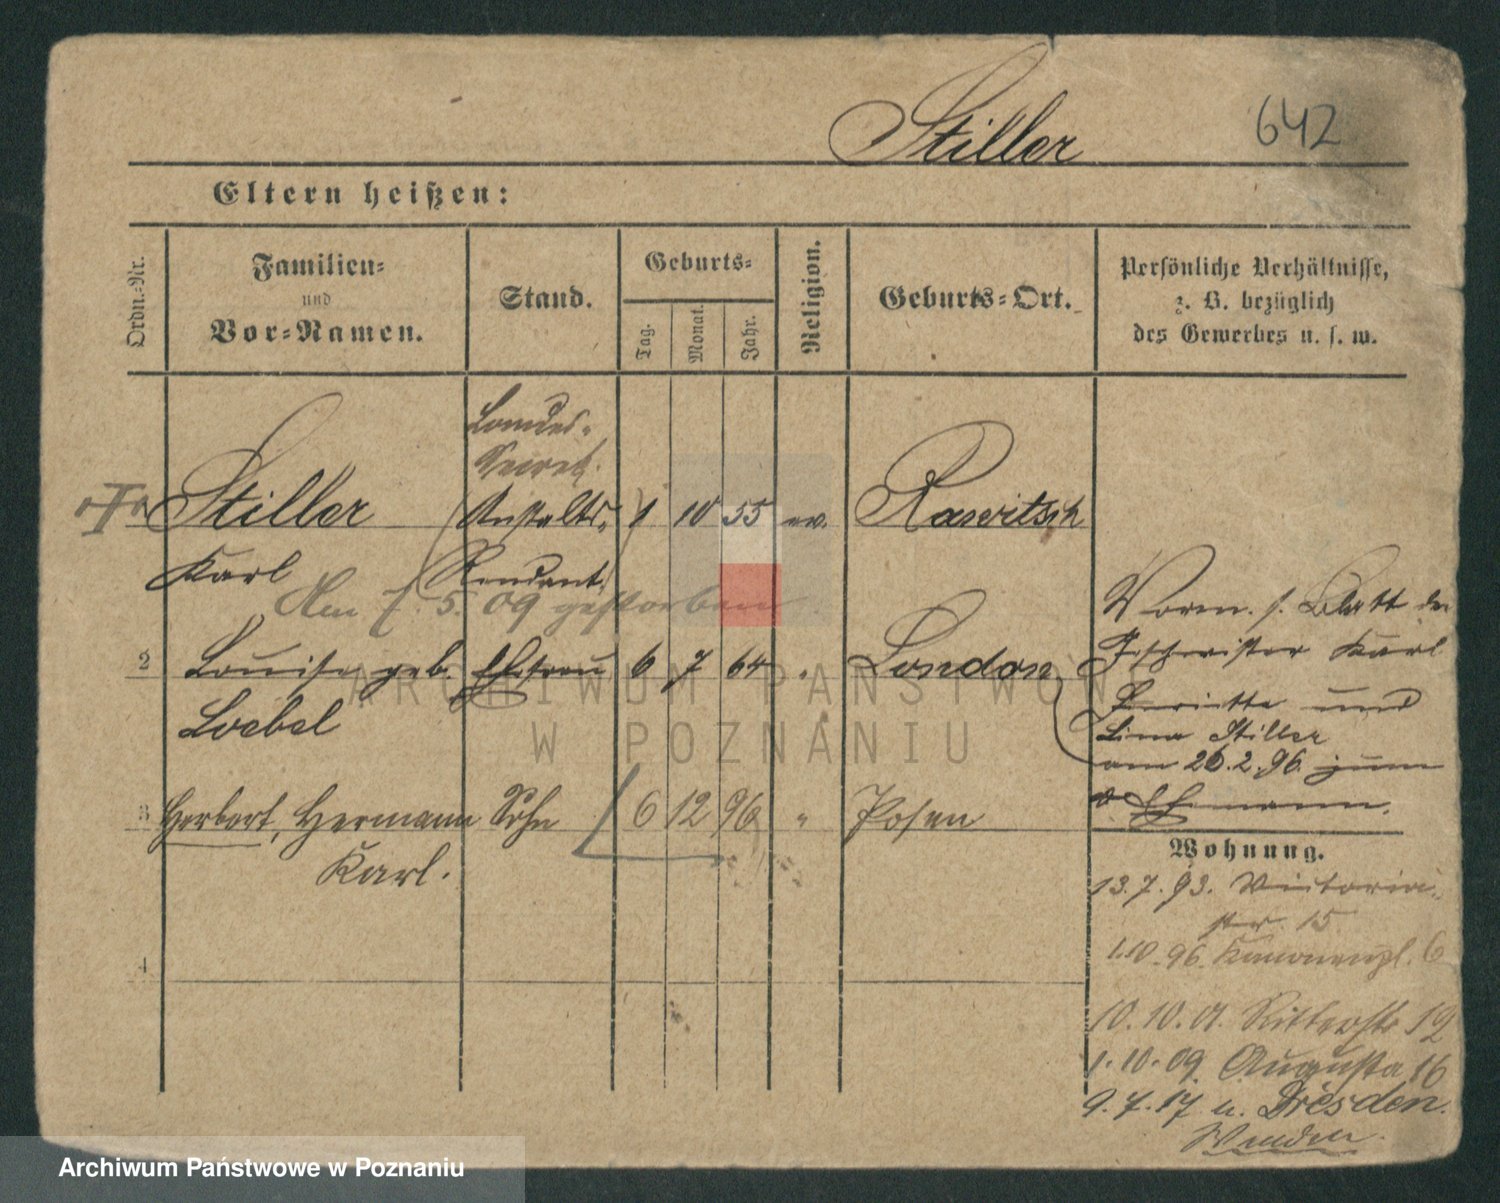 Stiller
642
Eltern heißen:
Ordn.-Nr.
Familien-
und
Vor-Namen.
Stand.
Geburts-
Tag.
Monat.
Jahr.
Religion.
Geburts-Ort.
Persönliche Verhältnisse,
z. B. bezüglich
des Gewerbes u. s. w.
Landes-
Secret.
Stiller
Anstalts-
1 10 55 ev.
Rawitsch
Karl
Rendant
Am 7. 5. 09 gestorben
2 Louise geb. Ehefrau 6 7 64 " London
Loebel
Vorm. s. Blatt der
Geschwister Karl
und
Lina Stiller
am 26.2.96 zum
Ehemann.
3 Herbert, Hermann Sohn 6 12 96 " Posen
Karl.
4
Wohnung.
13.7.93. Victoria-
str. 15
1.10.96. Kanonenpl. 6
10.10.01. Ritterstr 19
1.10.09 Augusta 16
9.7.17 n. Dresden.
Wenden.
ARCHIWUM PAŃSTWOWE
W POZNANIU
Archiwum Państwowe w Poznaniu